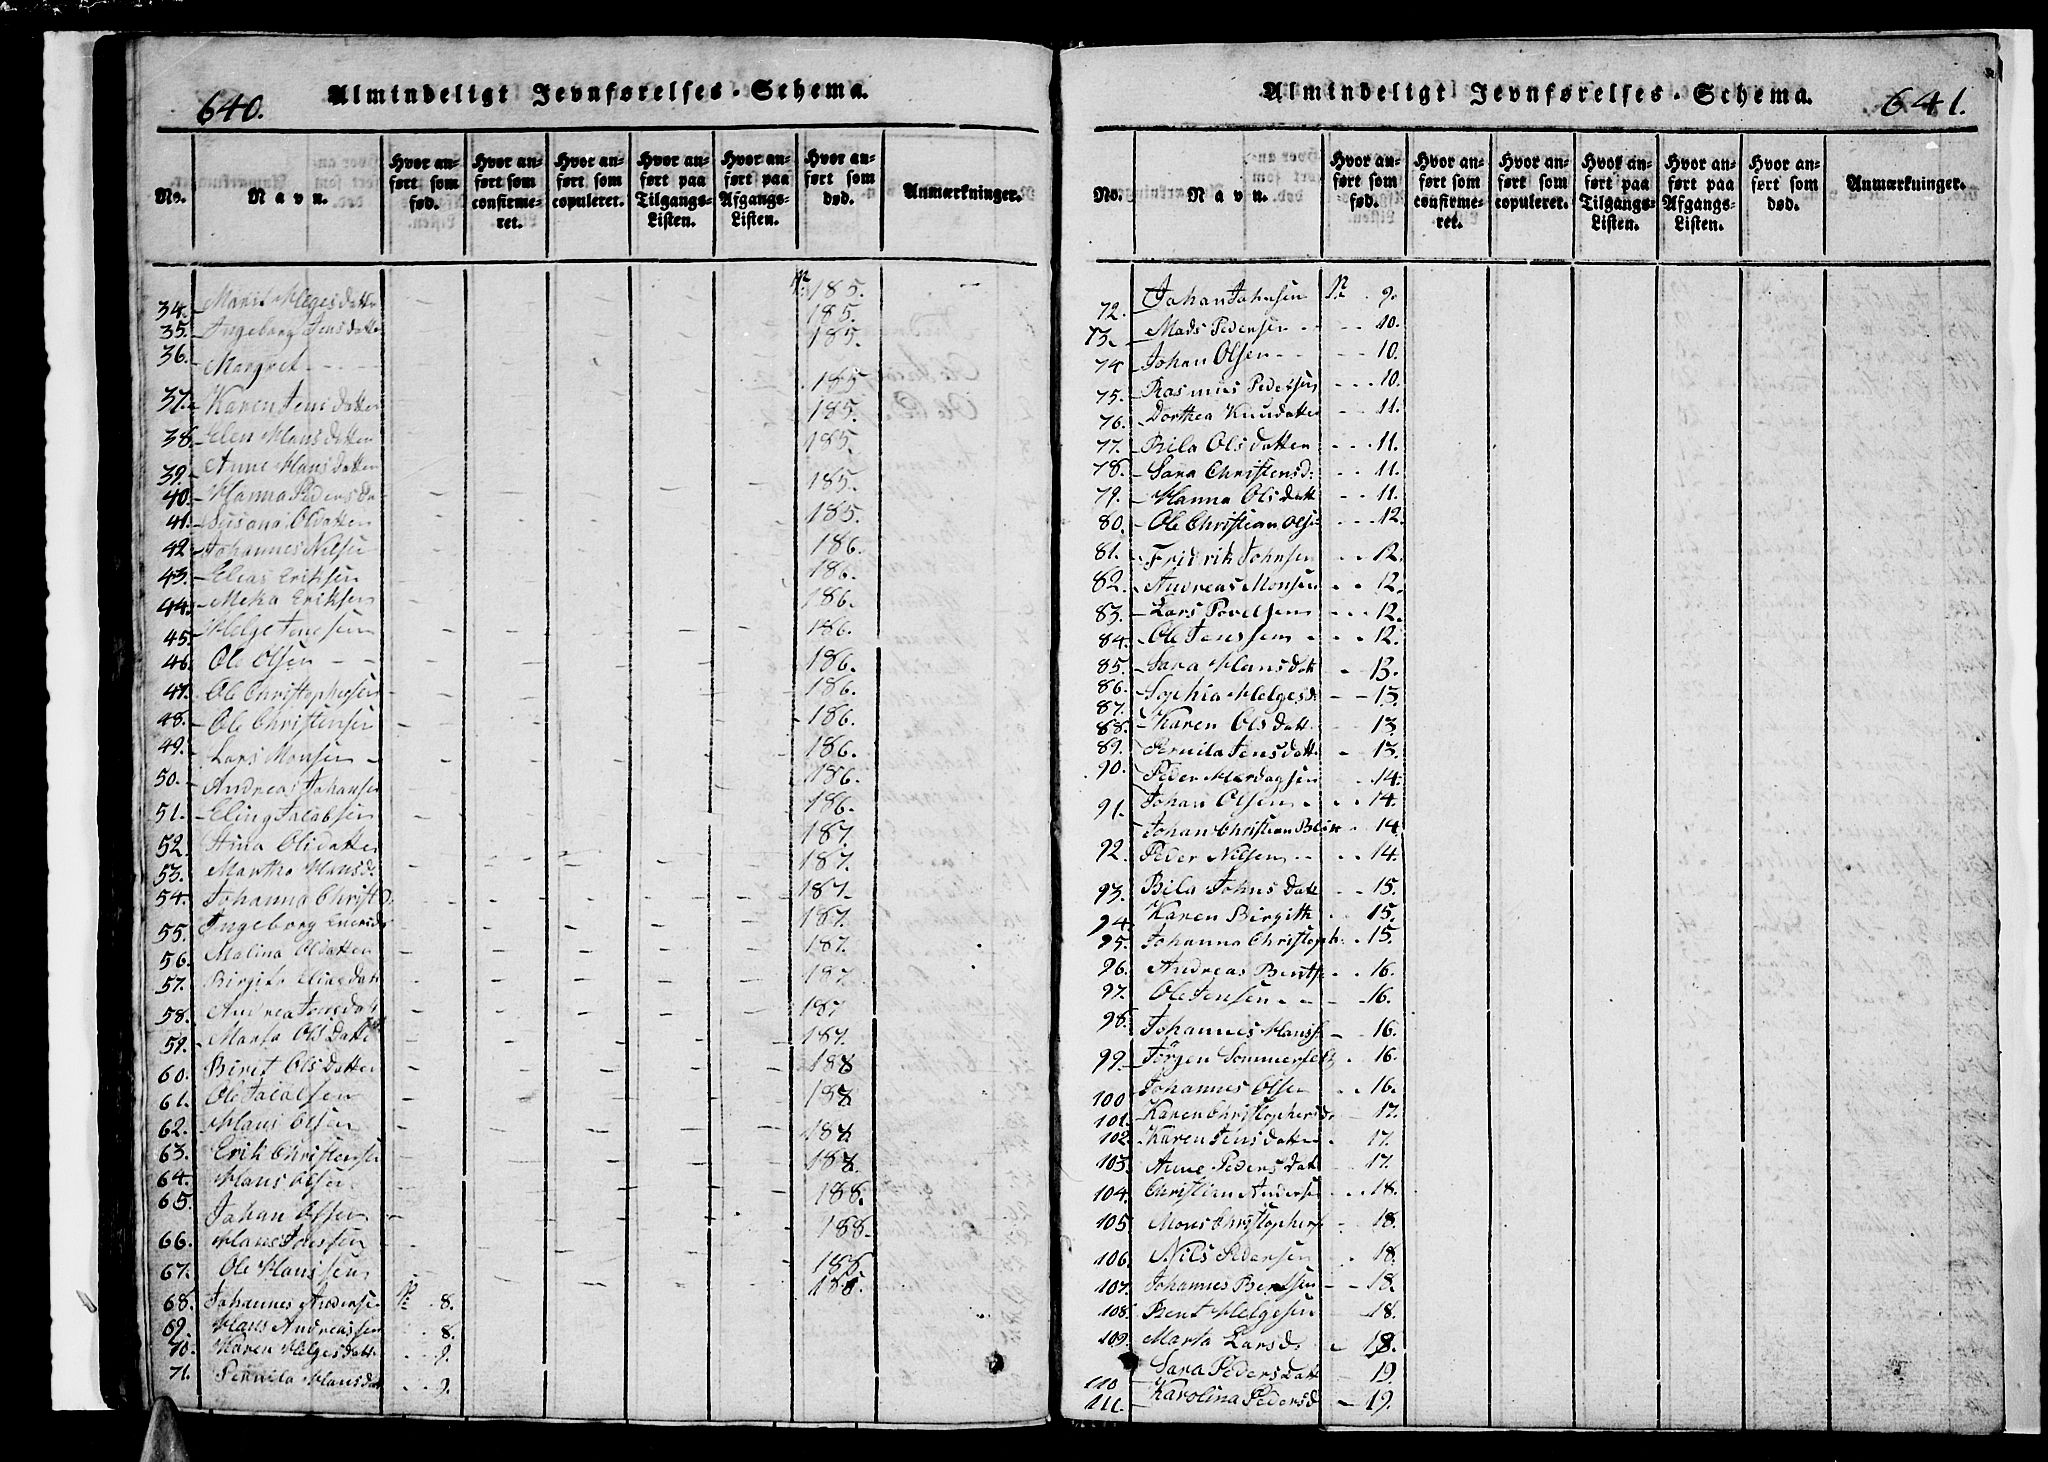 640.
Almindeligt Jevnførelses-Schema.
No.
Navn.
Hvor anført som fød.
Hvor anført som confirmeret.
Hvor anført som copuleret.
Hvor anført paa Tilgangs-Listen.
Hvor anført paa Afgangs-Listen.
Hvor anført som død.
Anmærkninger.
34. Marit Helgesdatter 185.
35. Ingeborg Jensdatter 185.
36. Margret 185.
37. Karen Jensdatter 185.
38. Elen Hansdatter 185.
39. Anne Hansdatten 185.
40. Hanna Peders da 185.
41. Susana Olsdatten 185.
42. Johannes Nilsen 186.
43. Elias Eriksen 186.
44. Meka Eriksen 186.
45. Helge Jensen 186.
46. Ole Olsen 186.
47. Ole Christophersen 186.
48. Ole Christensen 186.
49. Lars Monsen 186.
50. Andreas Johansen 186.
51. Eling Jacobsen 186.
52. Olsdatter 187.
53. Martha Hansd 187.
54. Johanna Christ D. 187.
55. Ingeborg 187.
56. Malina Olsdatten 187.
57. Birgita Eliasdatt 187.
58. Andrea Jensdatt 187
59. Marta Olsdatt 187.
60. Birit Olsdatter 188
61. Ole Jacobsen 188
62. Hans Olsen 188
63. Erik Christensen 188.
64. Hans Olsen 188.
65. Johan Olsen 188.
66. Hans Jonssen 188
67. Ole Hanssen 188.
68. Johannes Andersen No 8.
69. Hans Andreassen 8.
70. Karen Helgesdatt 9.
71. Pernila Hansdat 9.
Almindeligt Jevnførelses-Schema.
641.
No.
Navn.
Hvor anført som fød.
Hvor anført som confirmeret.
Hvor anført som copuleret.
Hvor anført paa Tilgangs-Listen.
Hvor anført paa Afgangs-Listen.
Hvor anført som død.
Anmærkninger.
72. Johan Johnsen 9.
73. Mads Pedersen 10.
74 Johan Olsen 10.
75. Rasmus Pedersen 10.
76. Dorthea Knudatter 11.
77. Bila Olsdatten 11.
78. Sara Christensd: 11.
79. Hanna Olsdatt 11.
80. Ole Christian Olsen 12.
81. Fridrik Johnsen 12.
82. Andreas Monsen 12.
83. Lars Povelsen 12.
84. Ole Jenssen 12.
85. Sara Hansdatt 13.
86. Sophia Helgesd: 13.
87.
88. Karen Olsdatt 13
89. Pernila Jensdatt 13.
90. Peder Mordagsen 14.
91. Johan Olsen 14.
Johan Christian Blix 14
92. Peder Nilsen 14.
93. Bila Johnsdatt 15.
94. Karen Birgith 15.
95. Johanna Christoph. 15.
96. Andreas Bentsen 16.
97. Ole Jensen 16.
98. Johannes Hanss 16.
99. Jørgen Sommerfelt 16.
100 Johannes Olsen 16.
101. Karen Christophersd 17.
102. Karen Jensdatten 17.
103. Anne Pedersdatt 17.
104. Christian Andersen 18.
105 Mons Christophers 18.
106. Nils Pedersen 18.
107. Johannes Bentsen 18.
108. Bent Helgesen 18.
109. Marta Larsd. 18.
110 Sara Pedersdatt 19.
111. Karolina Pedersd 19.